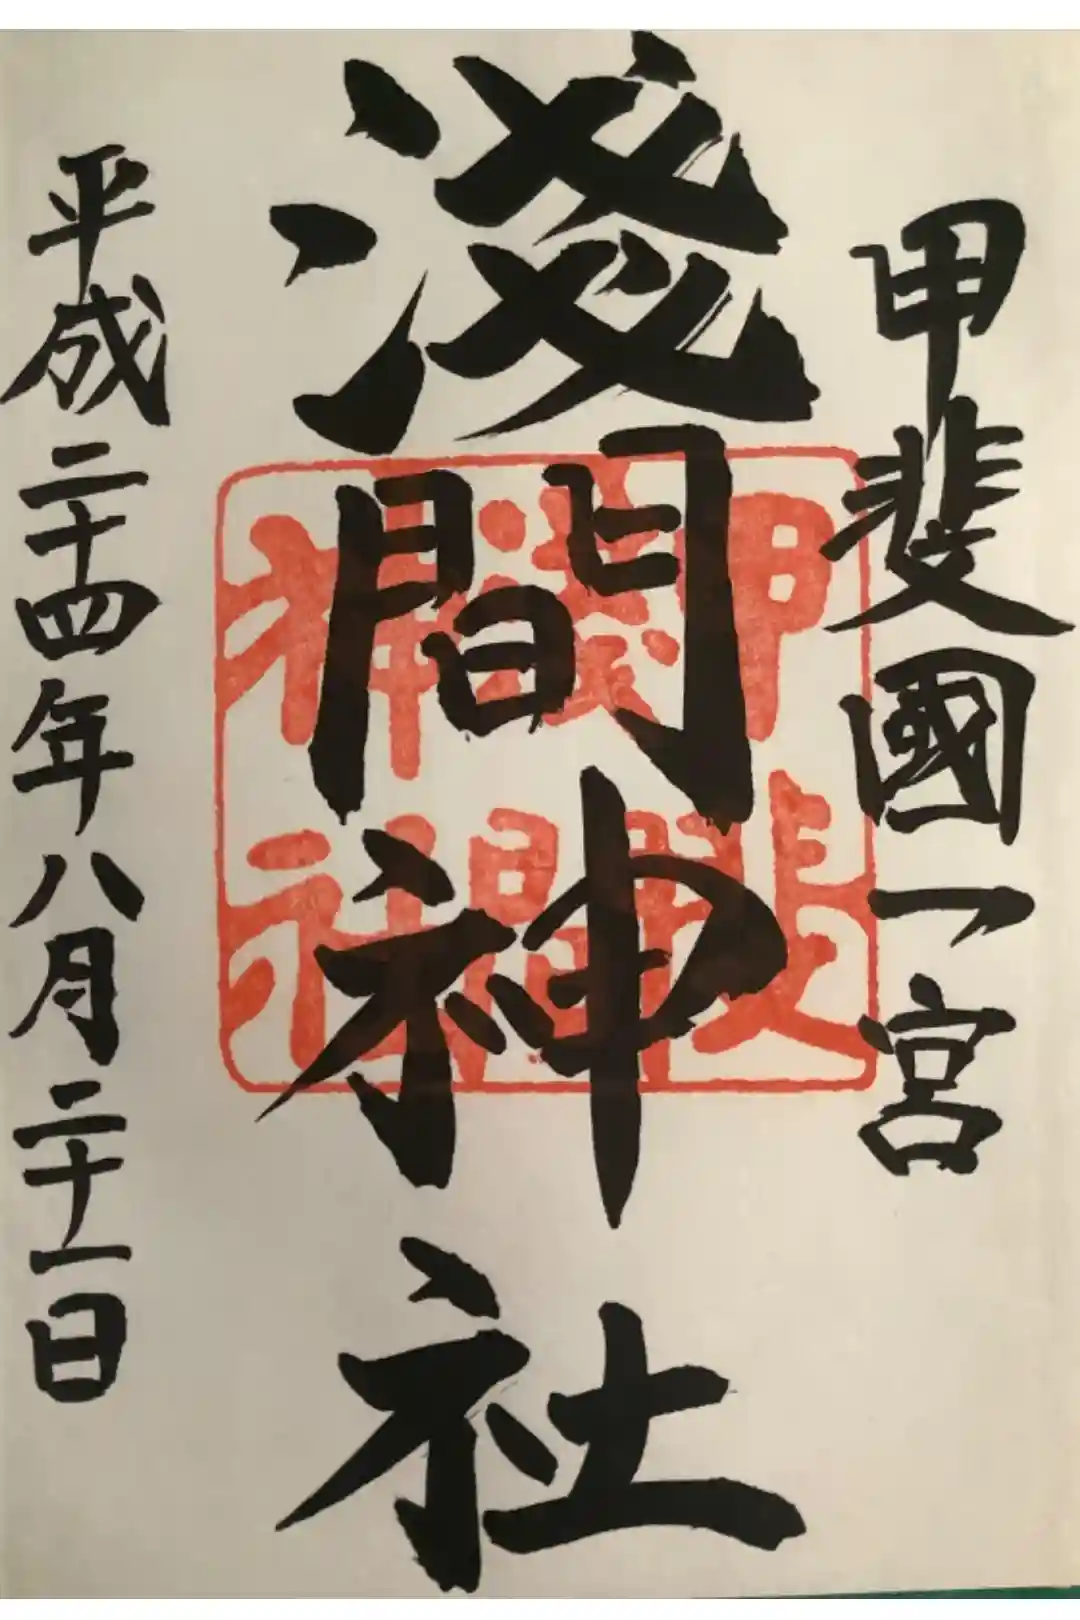 甲斐國一宮
淺間神社
平成二十四年八月二十一日
甲斐
淺間
神社